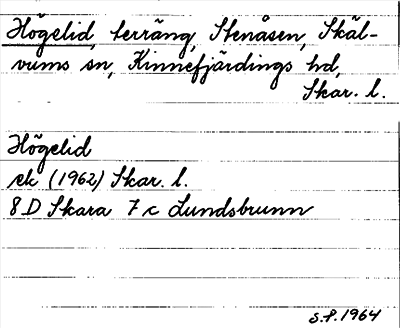 Högelid, terräng, Stenåsen, Skäl-
vums sn, Kinnefjärdings hd,
Skar. l.
Högelid
ek (1962) Skar. l.
8 D Skara 7 c Lundsbrunn
S.P. 1964